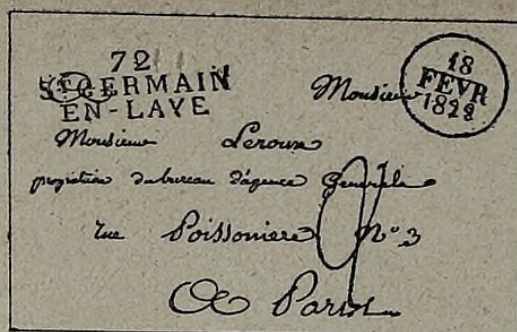 72
ST GERMAIN
EN-LAYE
18
FEVR
Monsieur
Monsieur Leroux
propriétaire du bureau d'agence Generale
rue Poissoniere N° 3
A Paris